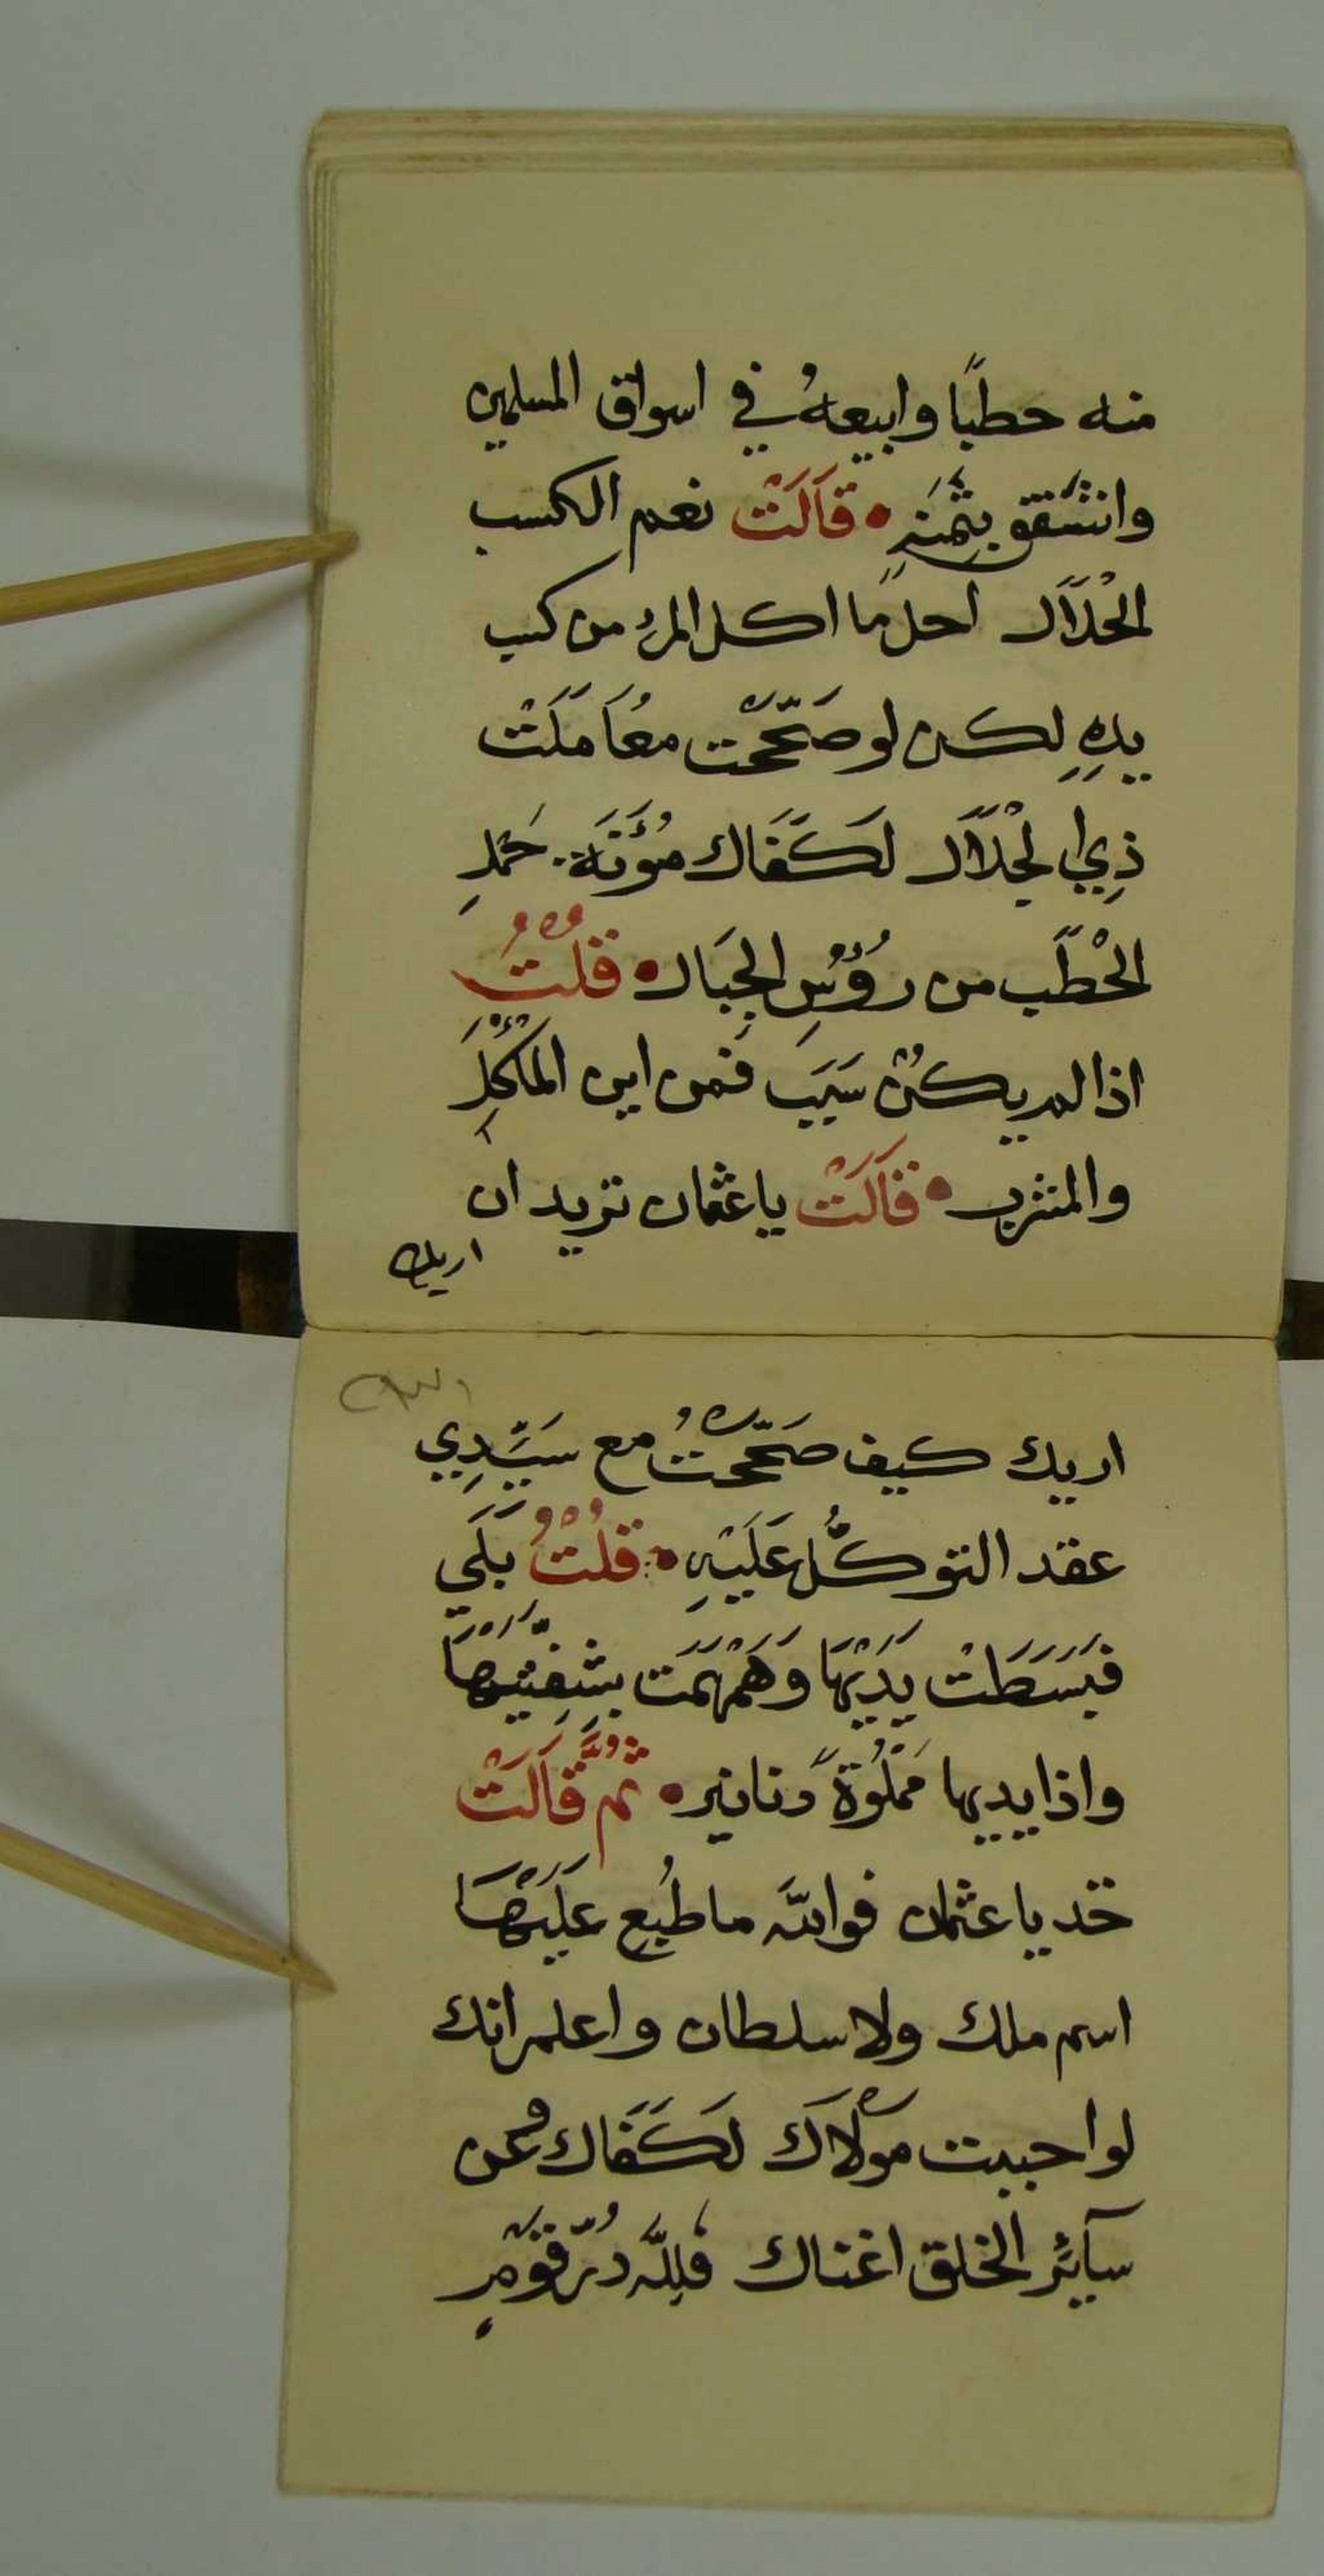 منه حطبًا وابيعهُ في اسواق المسلمين
وانتقوي بثمنهِ • قَالَتْ نعم الكسب
الْحَلَاَل احل ما اكل المرء من كسب
يدهِ لكن لو صَحَّحْتَ مُعَامَلَتْ
ذِي الجْلَاَل لَكَفَاك مُؤنَة حَمْلِ
الْحْطَب من رؤُسِ الجِبَال • قُلْتُ
اذا لم يكُنْ سَبَب فمن اين المأْكَلِ
والمشرب • قَالَتْ يا عثمان تريد ان
اريك
اريك كيف صَحَّحْتُ مع سَيِّدِي
عقد التوكُّل عَلَيْهِ • قُلْتُ بَلَي
فَبَسَطَتْ يَدَيْهَا وَهَمْهَمَت بِشَفَتَيْهَا
واذا يديها مَمْلُوَةً دنانير • ثُمَّ قَالَتْ
خد يا عثمان فوالله ما طُبع عَلَيْهَا
اسم ملك ولا سلطان واعلم انك
لو احببت موْلَاكَ لَكَفَاك وعن
سآئر الخلق اغناك فلِلَّه دُرّ قَوْمٍ